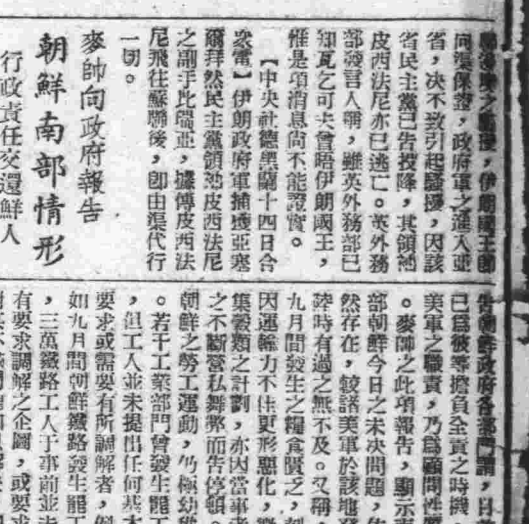 之騷擾,伊朗國王即
向渠保證,政府軍之進入亞
省,決不致引起騷擾,因該
省民主黨已告投降,其領袖
皮西法尼亦已逃亡。英外務
部發言人稱,雖英外務部已
知瓦乞可夫曾晤伊朗國王,
惟是項消息尚不能證實。
【中央社德黑蘭十四日合
衆電】伊朗政府軍捕獲亞塞
爾拜然民主黨領袖皮西法尼
之副手比瑞亞,據傳皮西法
尼飛往蘇聯後,即由渠代行
一切。
麥帥向政府報告
朝鮮南部情形
行政責任交還鮮人
告朝鮮政府各部門謂,日
已爲彼等擔負全責之時機
美軍之職責,乃爲顧問性
。麥帥之此項報告,顯示
部朝鮮今日之未決問題,
然存在,較諸美軍於該地登
陸時有過之無不及。又稱
九月間發生之糧食匱乏,
因運輸力不佳更形惡化,
集穀類之計劃,亦因當事
之不斷營私舞弊而告停頓。
朝鮮之勞工運動,仍極幼
。若干工業部門曾發生罷工
,但工人並未提出任何基本
要求或需要有所調解者,例
如九月間朝鮮鐵路發生罷工
,三萬鐵路工人于事前並未
有要求調解之企圖,或要求